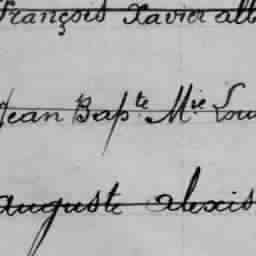 François Xavier alb
Jean Bapte Mie Lou
auguste alexis